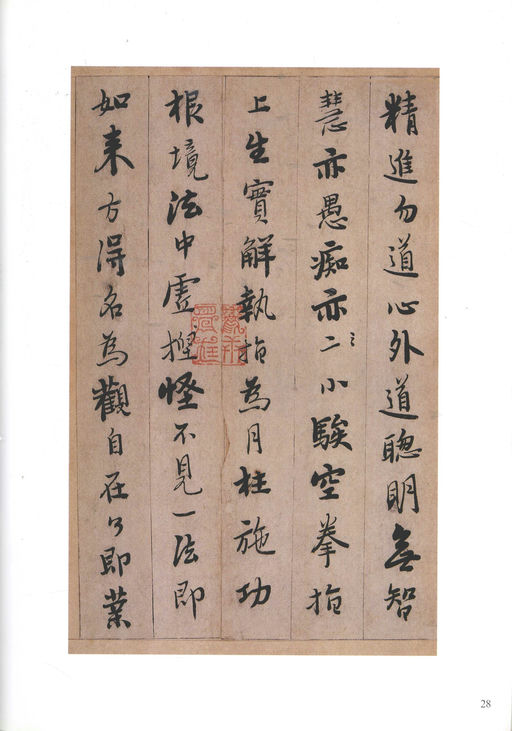 精進勿道心外道聰明無智
慧亦愚痴亦二小騃空拳指
上生實解執指為月柱施功
根境法中虛揑怪不見一法即
如来方得名為觀自在了即業
28